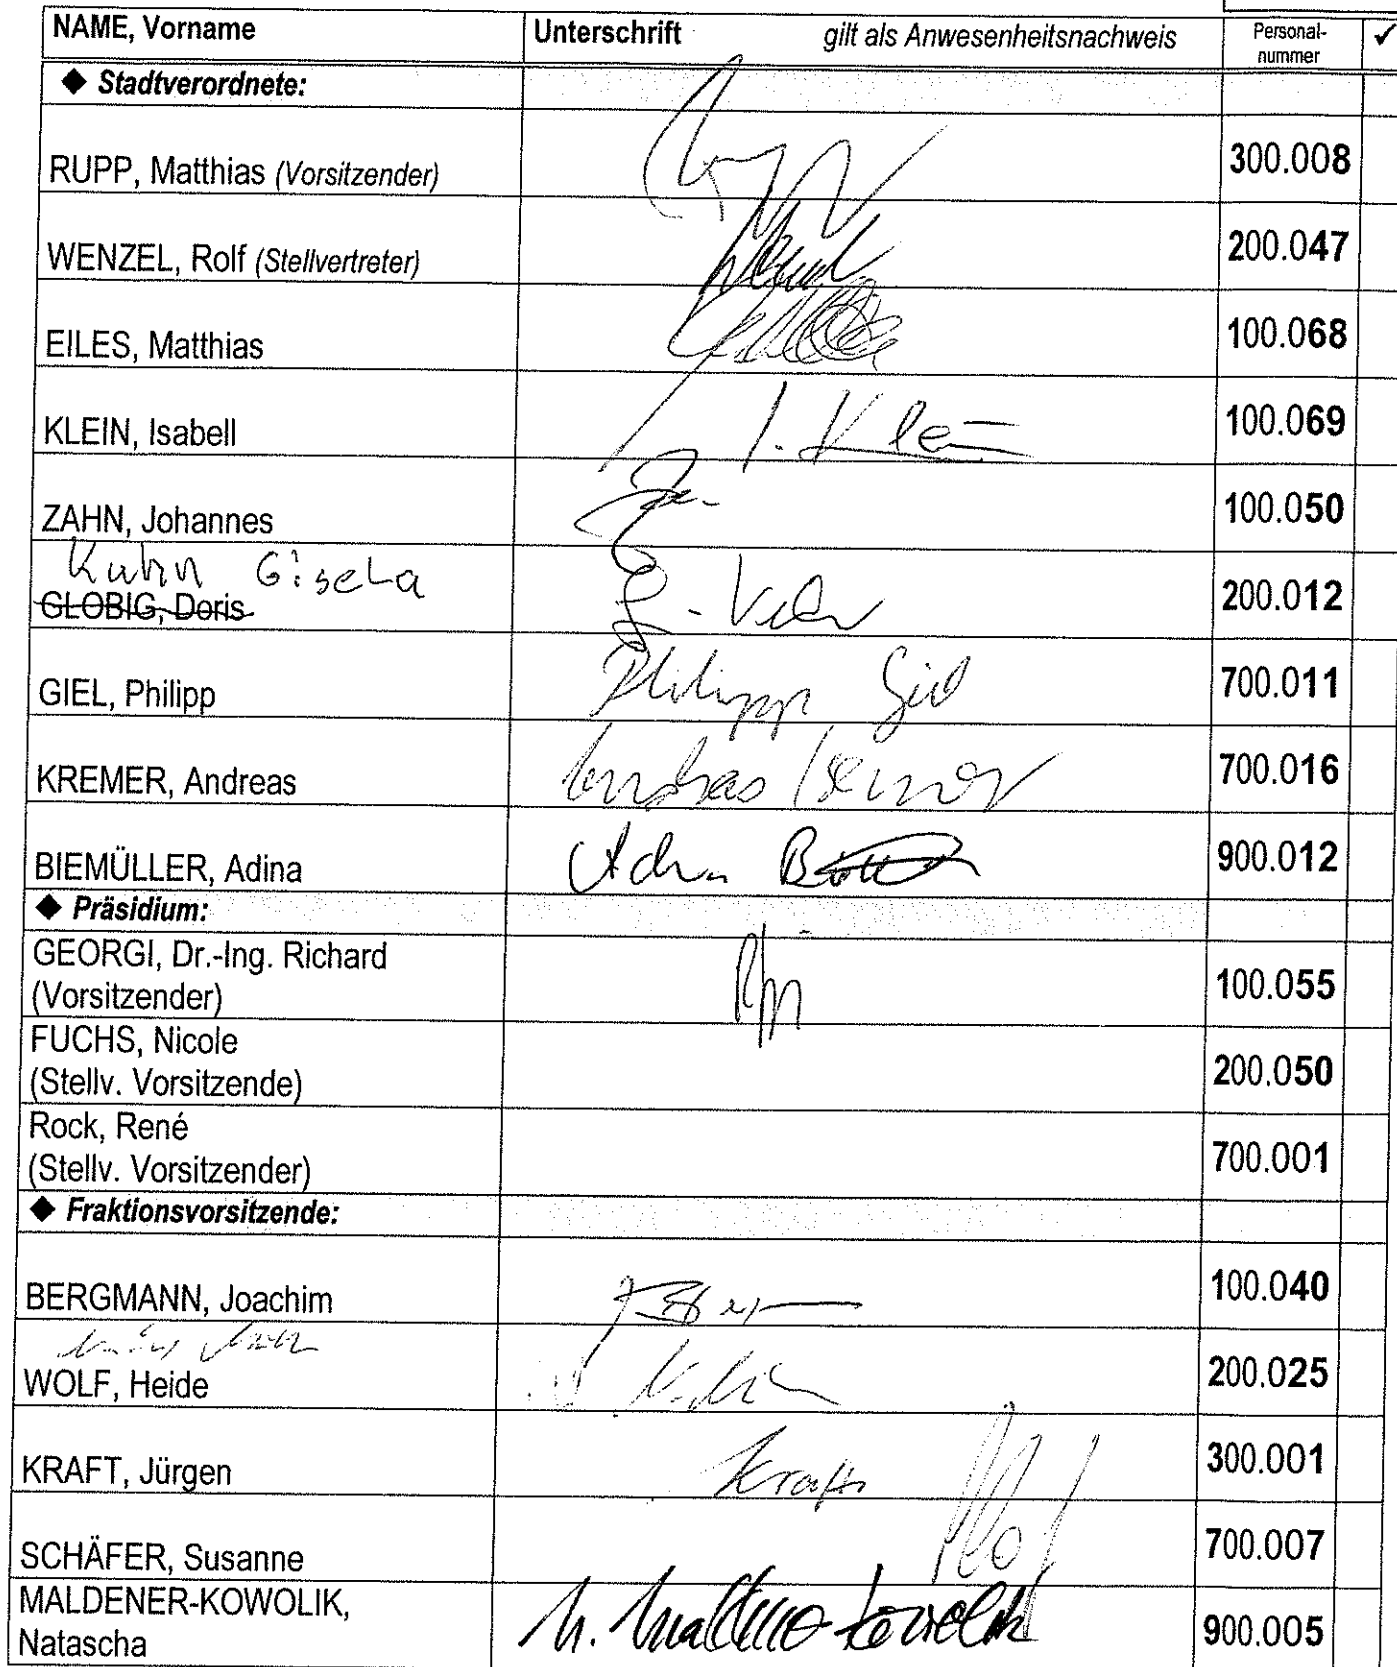 NAME, Vorname Unterschrift gilt als Anwesenheitsnachweis Personal-nummer ✓
◆ Stadtverordnete:
RUPP, Matthias (Vorsitzender) 300.008
WENZEL, Rolf (Stellvertreter) 200.047
EILES, Matthias 100.068
KLEIN, Isabell I. Klein 100.069
ZAHN, Johannes 100.050
Kuhn Gisela
GLOBIG, Doris 200.012
GIEL, Philipp Philipp Giel 700.011
KREMER, Andreas Andreas Kremer 700.016
BIEMÜLLER, Adina Adina 900.012
◆ Präsidium:
GEORGI, Dr.-Ing. Richard
(Vorsitzender) 100.055
FUCHS, Nicole
(Stellv. Vorsitzende) 200.050
Rock, René
(Stellv. Vorsitzender) 700.001
◆ Fraktionsvorsitzende:
BERGMANN, Joachim 100.040
WOLF, Heide 200.025
KRAFT, Jürgen Kraft 300.001
SCHÄFER, Susanne 700.007
MALDENER-KOWOLIK,
Natascha N. Maldener-Kowolik 900.005